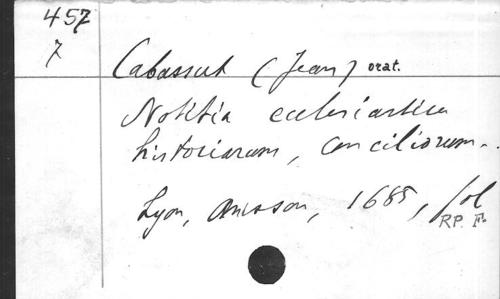 457
7
Cabassut (Jean) orat.
Notitia ecclesiastica
historiarum, conciliorum..
Lyon, Anisson, 1685, fol
RP. F.